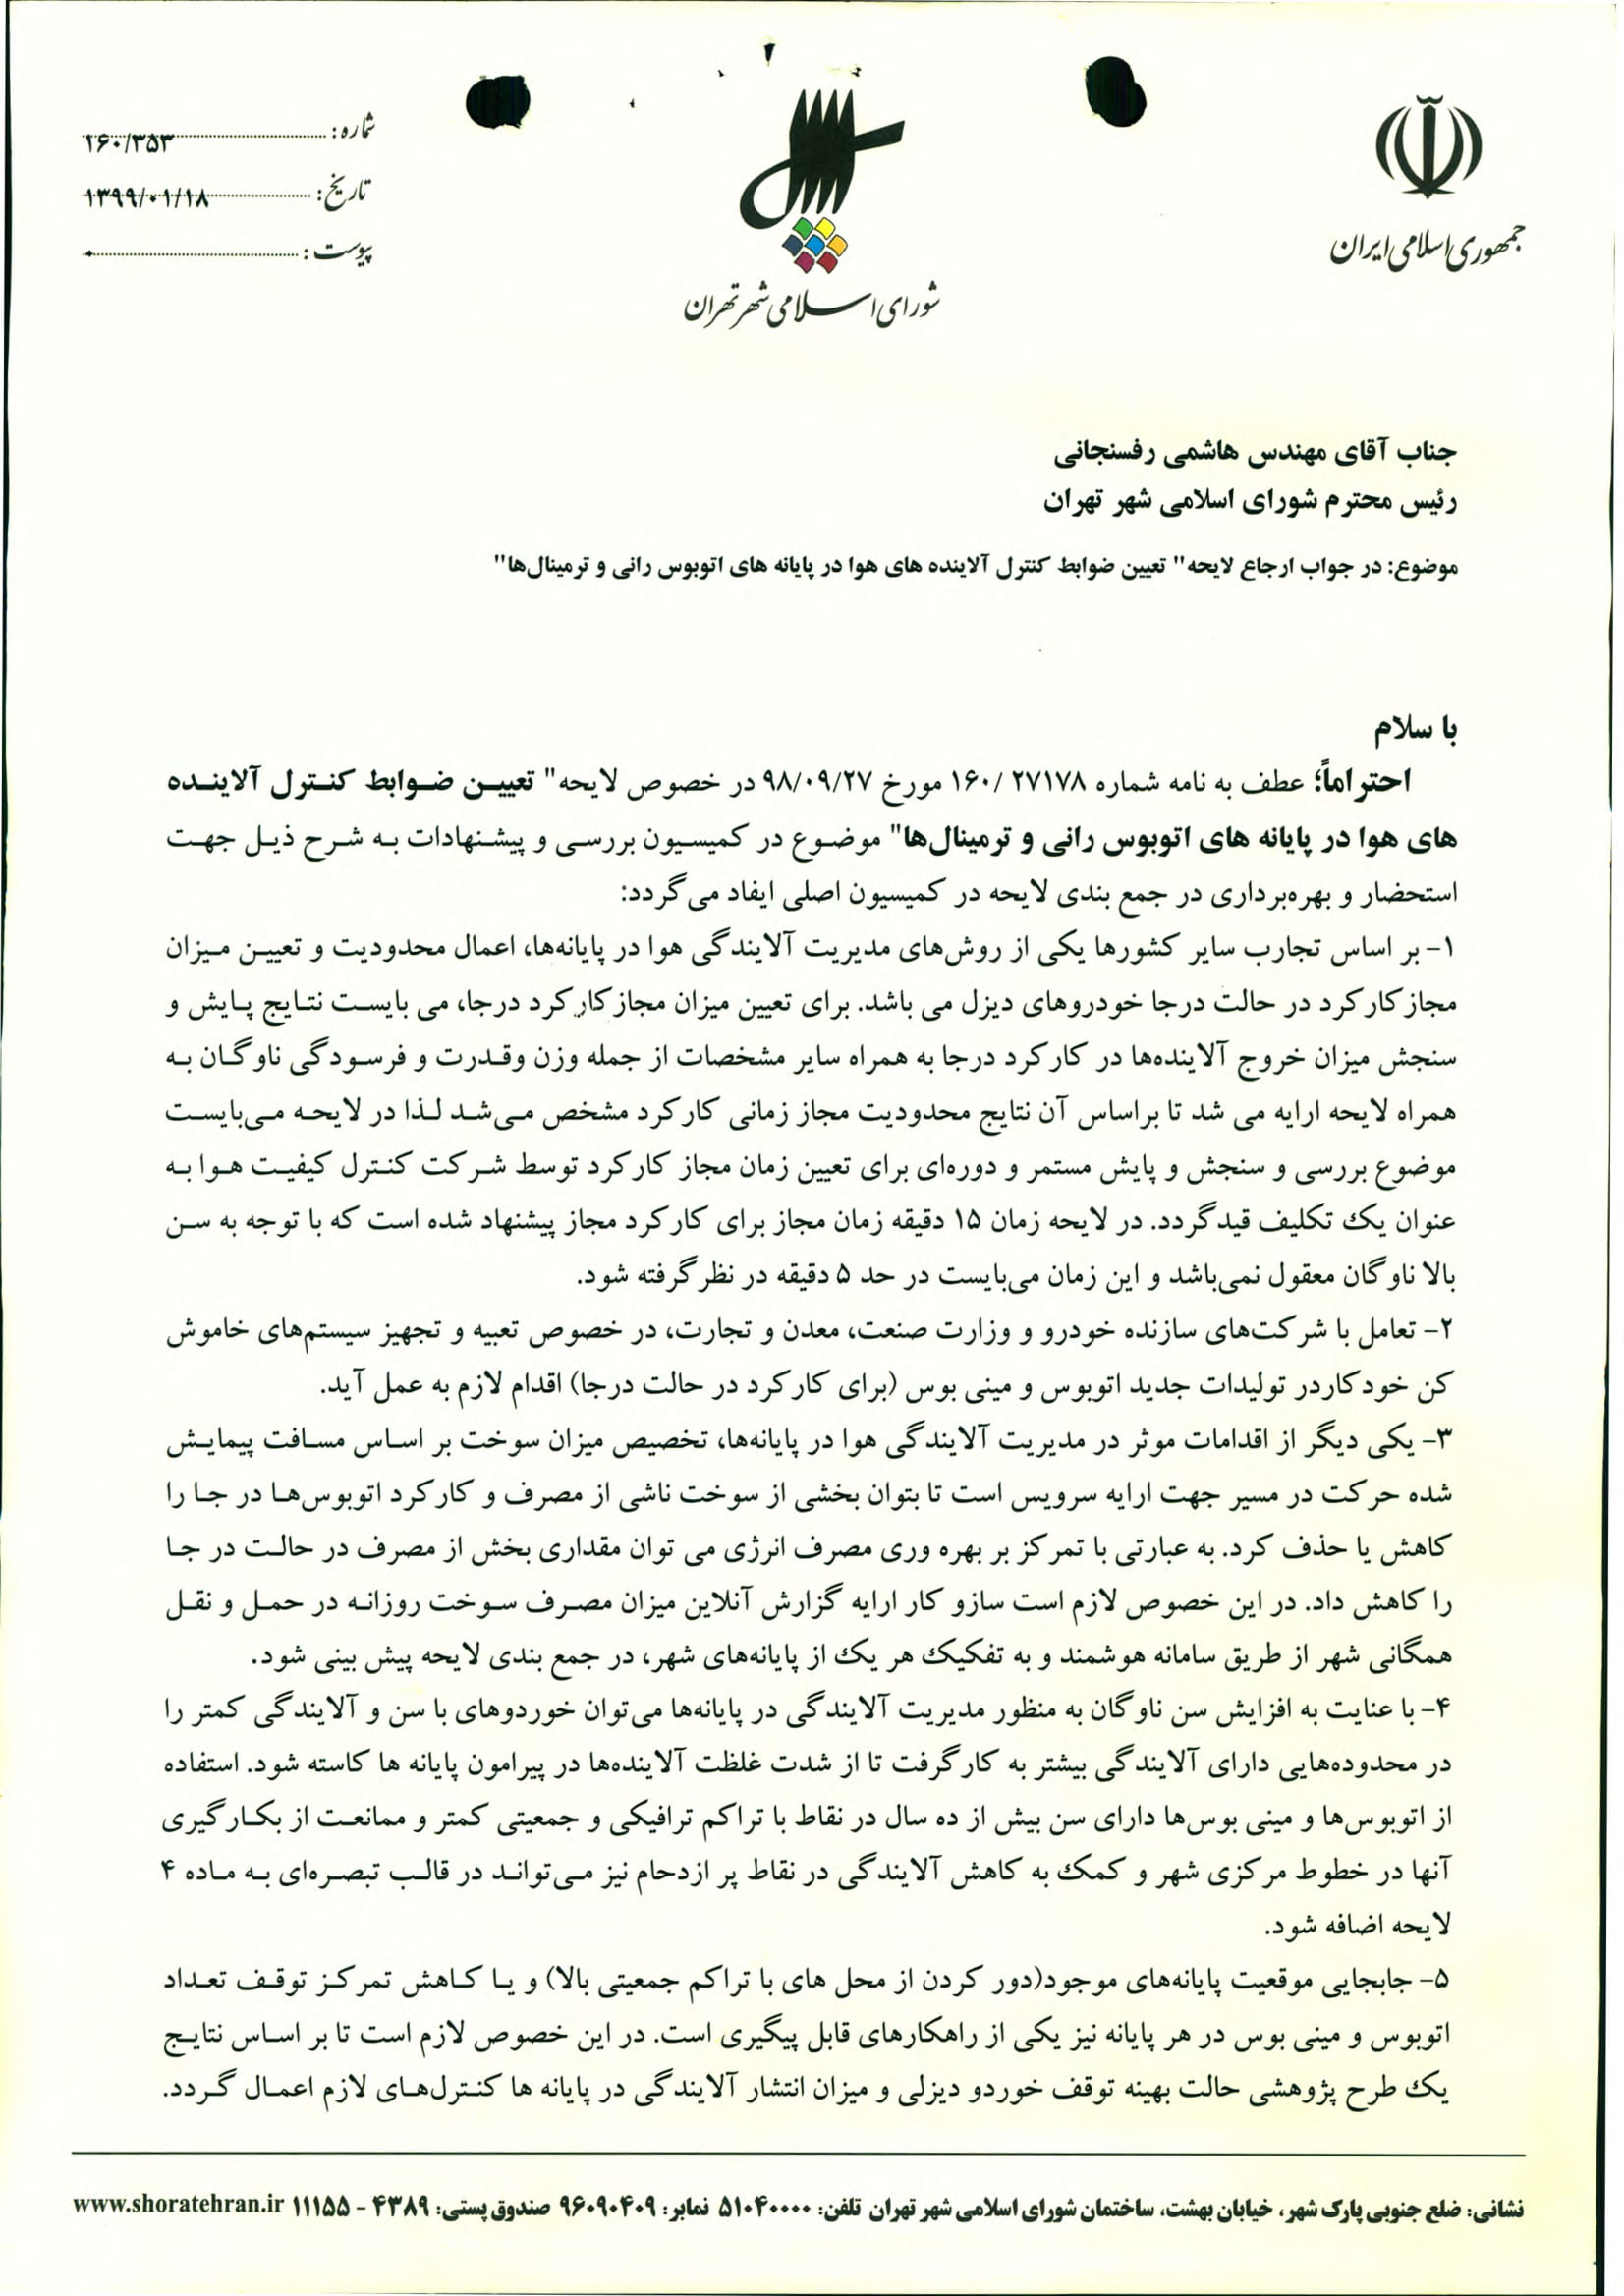 جمهوری اسلامی ایران
شورای اسلامی شهر تهران
شماره: ۱۶۰/۳۵۳
تاریخ: ۱۳۹۹/۰۱/۱۸
پیوست: ۰
جناب آقای مهندس هاشمی رفسنجانی
رئیس محترم شورای اسلامی شهر تهران
موضوع: در جواب ارجاع لایحه" تعیین ضوابط کنترل آلاینده های هوا در پایانه های اتوبوس رانی و ترمینال‌ها"
با سلام
احتراماً؛ عطف به نامه شماره ۲۷۱۷۸ /۱۶۰ مورخ ۹۸/۰۹/۲۷ در خصوص لایحه" تعیین ضوابط کنترل آلاینده
های هوا در پایانه های اتوبوس رانی و ترمینال‌ها" موضوع در کمیسیون بررسی و پیشنهادات به شرح ذیل جهت
استحضار و بهره‌برداری در جمع بندی لایحه در کمیسیون اصلی ایفاد می‌گردد:
۱- بر اساس تجارب سایر کشورها یکی از روش‌های مدیریت آلایندگی هوا در پایانه‌ها، اعمال محدودیت و تعیین میزان
مجاز کارکرد در حالت درجا خودروهای دیزل می باشد. برای تعیین میزان مجاز کارکرد درجا، می بایست نتایج پایش و
سنجش میزان خروج آلاینده‌ها در کارکرد درجا به همراه سایر مشخصات از جمله وزن وقدرت و فرسودگی ناوگان به
همراه لایحه ارایه می شد تا براساس آن نتایج محدودیت مجاز زمانی کارکرد مشخص می‌شد لذا در لایحه می‌بایست
موضوع بررسی و سنجش و پایش مستمر و دوره‌ای برای تعیین زمان مجاز کارکرد توسط شرکت کنترل کیفیت هوا به
عنوان یک تکلیف قیدگردد. در لایحه زمان ۱۵ دقیقه زمان مجاز برای کارکرد مجاز پیشنهاد شده است که با توجه به سن
بالا ناوگان معقول نمی‌باشد و این زمان می‌بایست در حد ۵ دقیقه در نظر گرفته شود.
۲- تعامل با شرکت‌های سازنده خودرو و وزارت صنعت، معدن و تجارت، در خصوص تعبیه و تجهیز سیستم‌های خاموش
کن خودکاردر تولیدات جدید اتوبوس و مینی بوس (برای کارکرد در حالت درجا) اقدام لازم به عمل آید.
۳- یکی دیگر از اقدامات موثر در مدیریت آلایندگی هوا در پایانه‌ها، تخصیص میزان سوخت بر اساس مسافت پیمایش
شده حرکت در مسیر جهت ارایه سرویس است تا بتوان بخشی از سوخت ناشی از مصرف و کارکرد اتوبوس‌ها در جا را
کاهش یا حذف کرد. به عبارتی با تمرکز بر بهره وری مصرف انرژی می توان مقداری بخش از مصرف در حالت در جا
را کاهش داد. در این خصوص لازم است سازو کار ارایه گزارش آنلاین میزان مصرف سوخت روزانه در حمل و نقل
همگانی شهر از طریق سامانه هوشمند و به تفکیک هر یک از پایانه‌های شهر، در جمع بندی لایحه پیش بینی شود.
۴- با عنایت به افزایش سن ناوگان به منظور مدیریت آلایندگی در پایانه‌ها می‌توان خوردوهای با سن و آلایندگی کمتر را
در محدوده‌هایی دارای آلایندگی بیشتر به کار گرفت تا از شدت غلظت آلاینده‌ها در پیرامون پایانه ها کاسته شود. استفاده
از اتوبوس‌ها و مینی بوس‌ها دارای سن بیش از ده سال در نقاط با تراکم ترافیکی و جمعیتی کمتر و ممانعت از بکارگیری
آنها در خطوط مرکزی شهر و کمک به کاهش آلایندگی در نقاط پر ازدحام نیز می‌تواند در قالب تبصره‌ای به ماده ۴
لایحه اضافه شود.
۵- جابجایی موقعیت پایانه‌های موجود(دور کردن از محل های با تراکم جمعیتی بالا) و یا کاهش تمرکز توقف تعداد
اتوبوس و مینی بوس در هر پایانه نیز یکی از راهکارهای قابل پیگیری است. در این خصوص لازم است تا بر اساس نتایج
یک طرح پژوهشی حالت بهینه توقف خوردو دیزلی و میزان انتشار آلایندگی در پایانه ها کنترل‌های لازم اعمال گردد.
نشانی: ضلع جنوبی پارک شهر، خیابان بهشت، ساختمان شورای اسلامی شهر تهران تلفن: ۵۱۰۴۰۰۰۰ نمابر: ۹۶۰۹۰۴۰۹ صندوق پستی: ۴۳۸۹ - ۱۱۱۵۵ www.shoratehran.ir